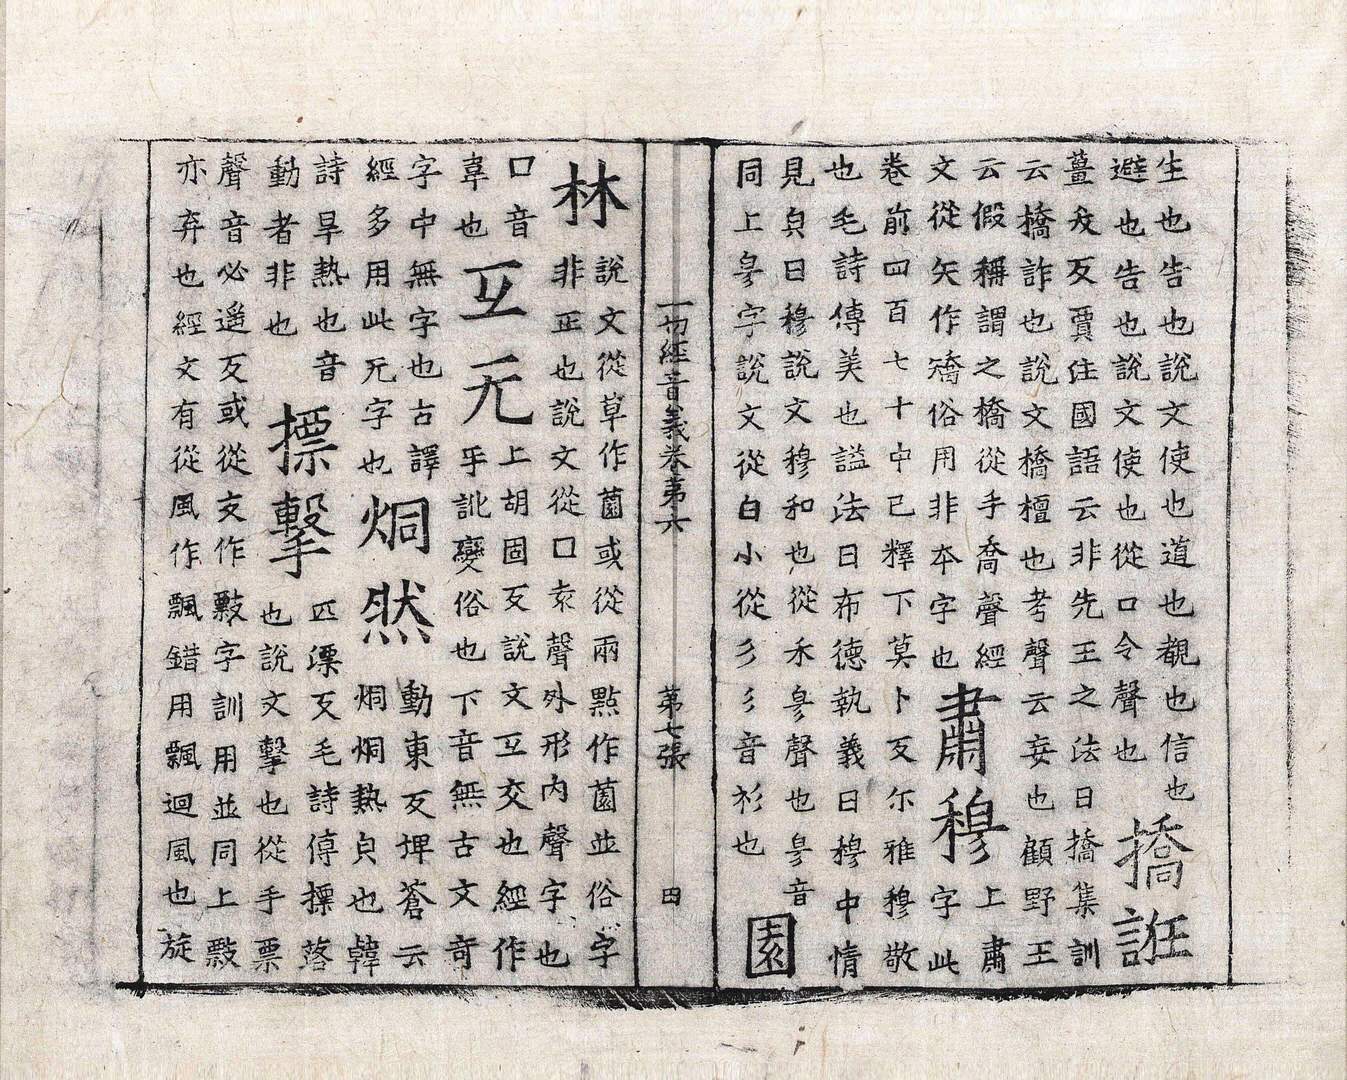 生也告也說文使也道也觀也信也
避也告也說文使也從口令聲也
撟誑
薑夭反賈注國語云非先王之法曰撟集訓
云撟詐也說文撟擅也考聲云妄也顧野王
云假稱謂之撟從手喬聲經
文從矢作矯俗用非本字也
肅穆
上肅
字此
卷前四百七十中已釋下莫卜反尒雅穆敬
也毛詩傳美也謚法曰布德執義曰穆中情
見皃曰穆說文穆和也從禾㣎聲也㣎音
同上㣎字說文從白小從彡彡音衫也
園
一切經音義卷第六 第七張 田
林
說文從草作薗或從兩點作薗並俗字
非正也說文從囗袁聲外形內聲字也
囗音
韋也
互无
上胡固反說文互交也經作
乎訛變俗也下音無古文奇
字中無字也古譯
經多用此无字也
烔然
動東反埤蒼云
烔烔熱皃也韓
詩旱熱也音
動者非也
摽擊
匹漂反毛詩傳摽落
也說文擊也從手票
聲音必遥反或從攴作字訓用並同上
亦弃也經文有從風作飄錯用飄迴風也旋